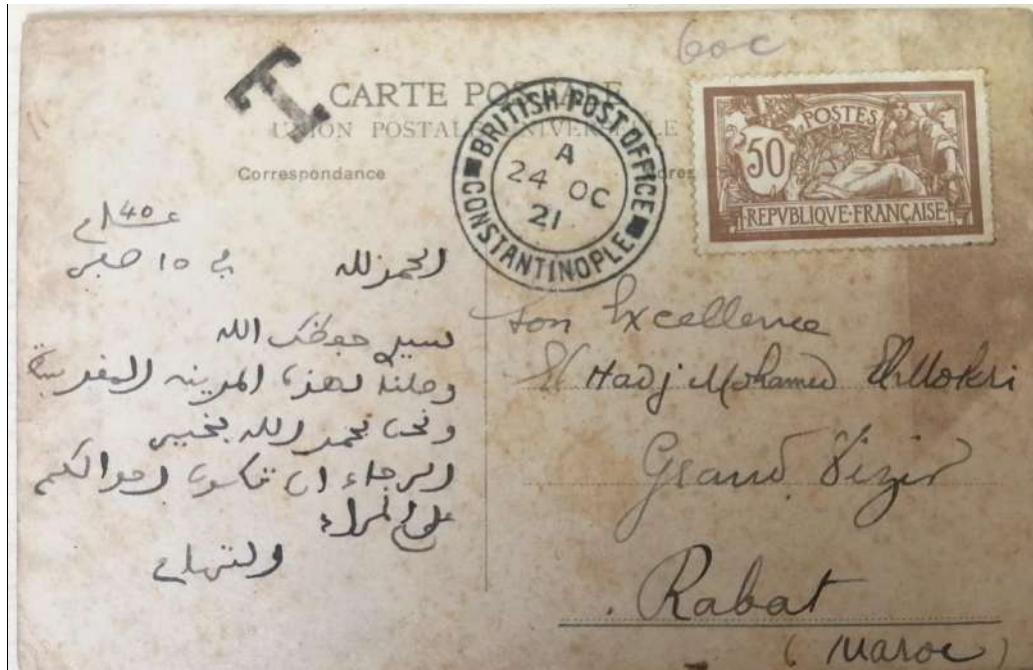 60c
T
CARTE POSTALE
UNION POSTALE UNIVERSELLE
Correspondance
BRITISH POST OFFICE
A
24 OC
21
CONSTANTINOPLE
POSTES
50
REPVBLIQVE FRANÇAISE
عام 40
في 15 صفر
الحمد لله
حفظك الله
وصلنا لهذه المدينة
ونحن بحمد الله بخير
الرجاء ان تكون احوالكم
على المراد
والسلام
Son Excellence
El Hadj Mohamed El Mokri
Grand Vizir
Rabat
(Maroc)